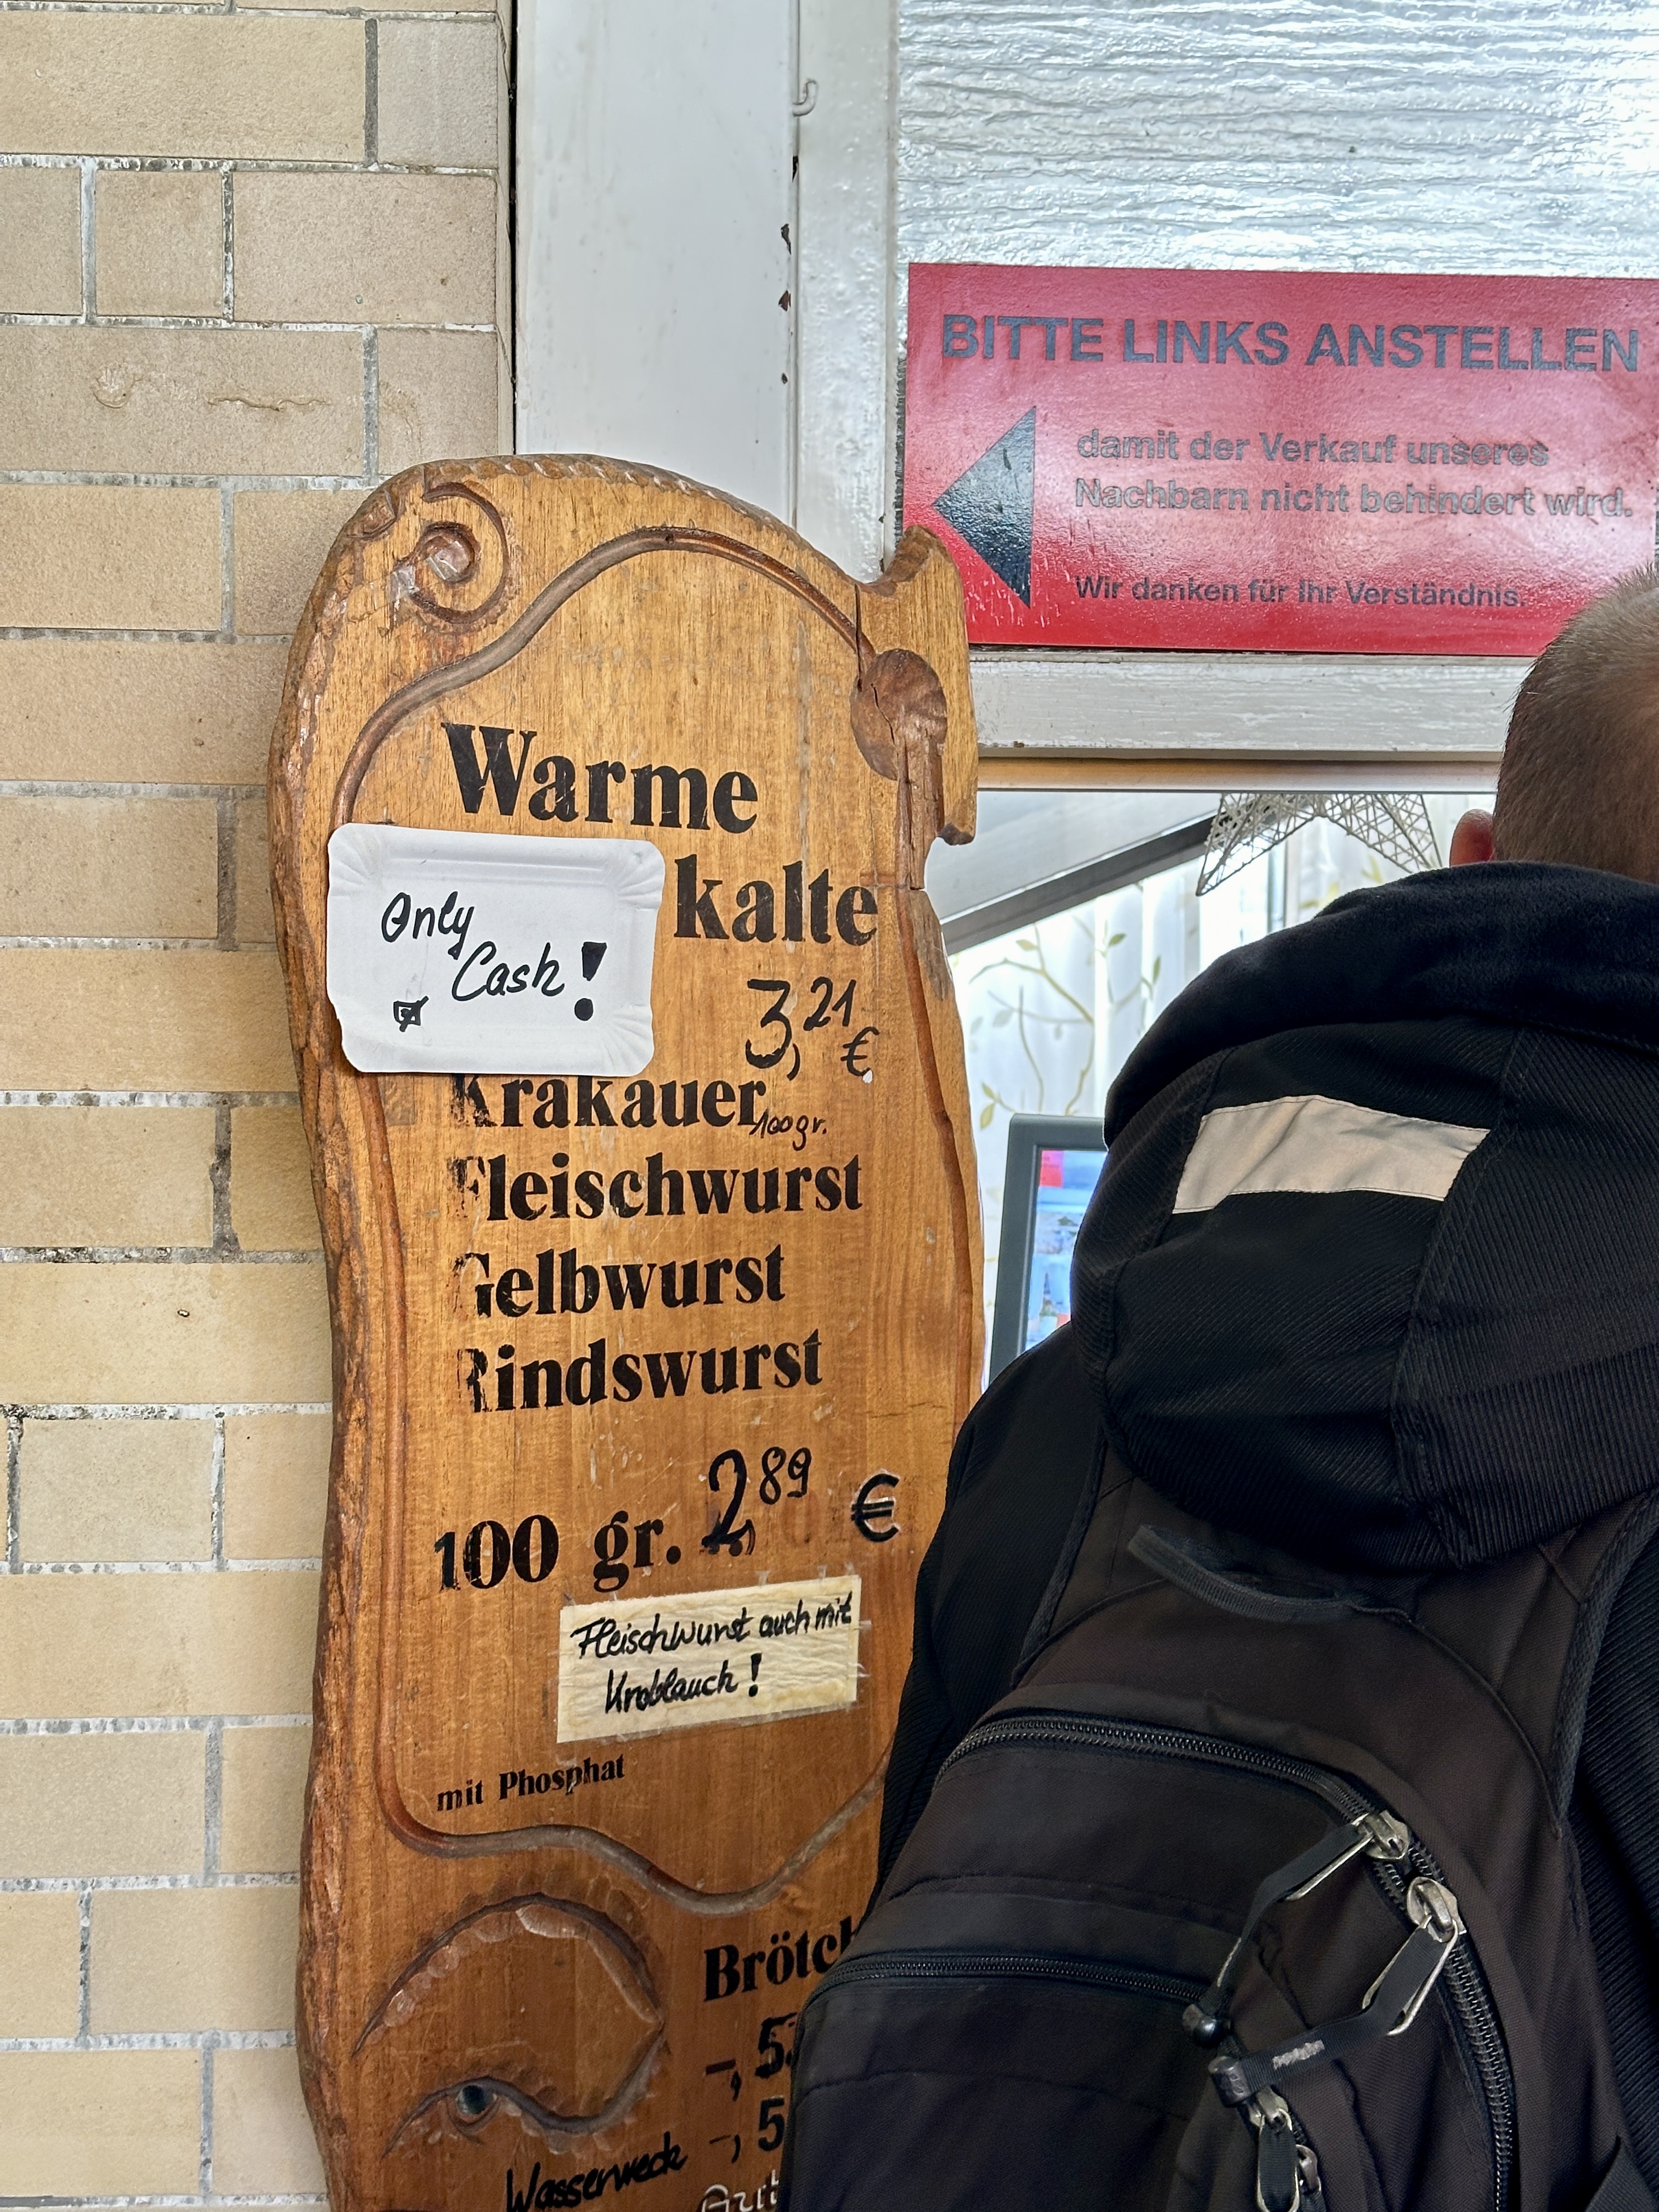 BITTE LINKS ANSTELLEN
damit der Verkauf unseres
Nachbarn nicht behindert wird.
Wir danken für Ihr Verständnis.
Warme
kalte
Only
Cash!
3,21 €
Krakauer
100 gr.
Fleischwurst
Gelbwurst
Rindswurst
100 gr. 2,89 €
Fleischwurst auch mit
Knoblauch!
mit Phosphat
Brötch
-, 5
-, 5
Wasserweck